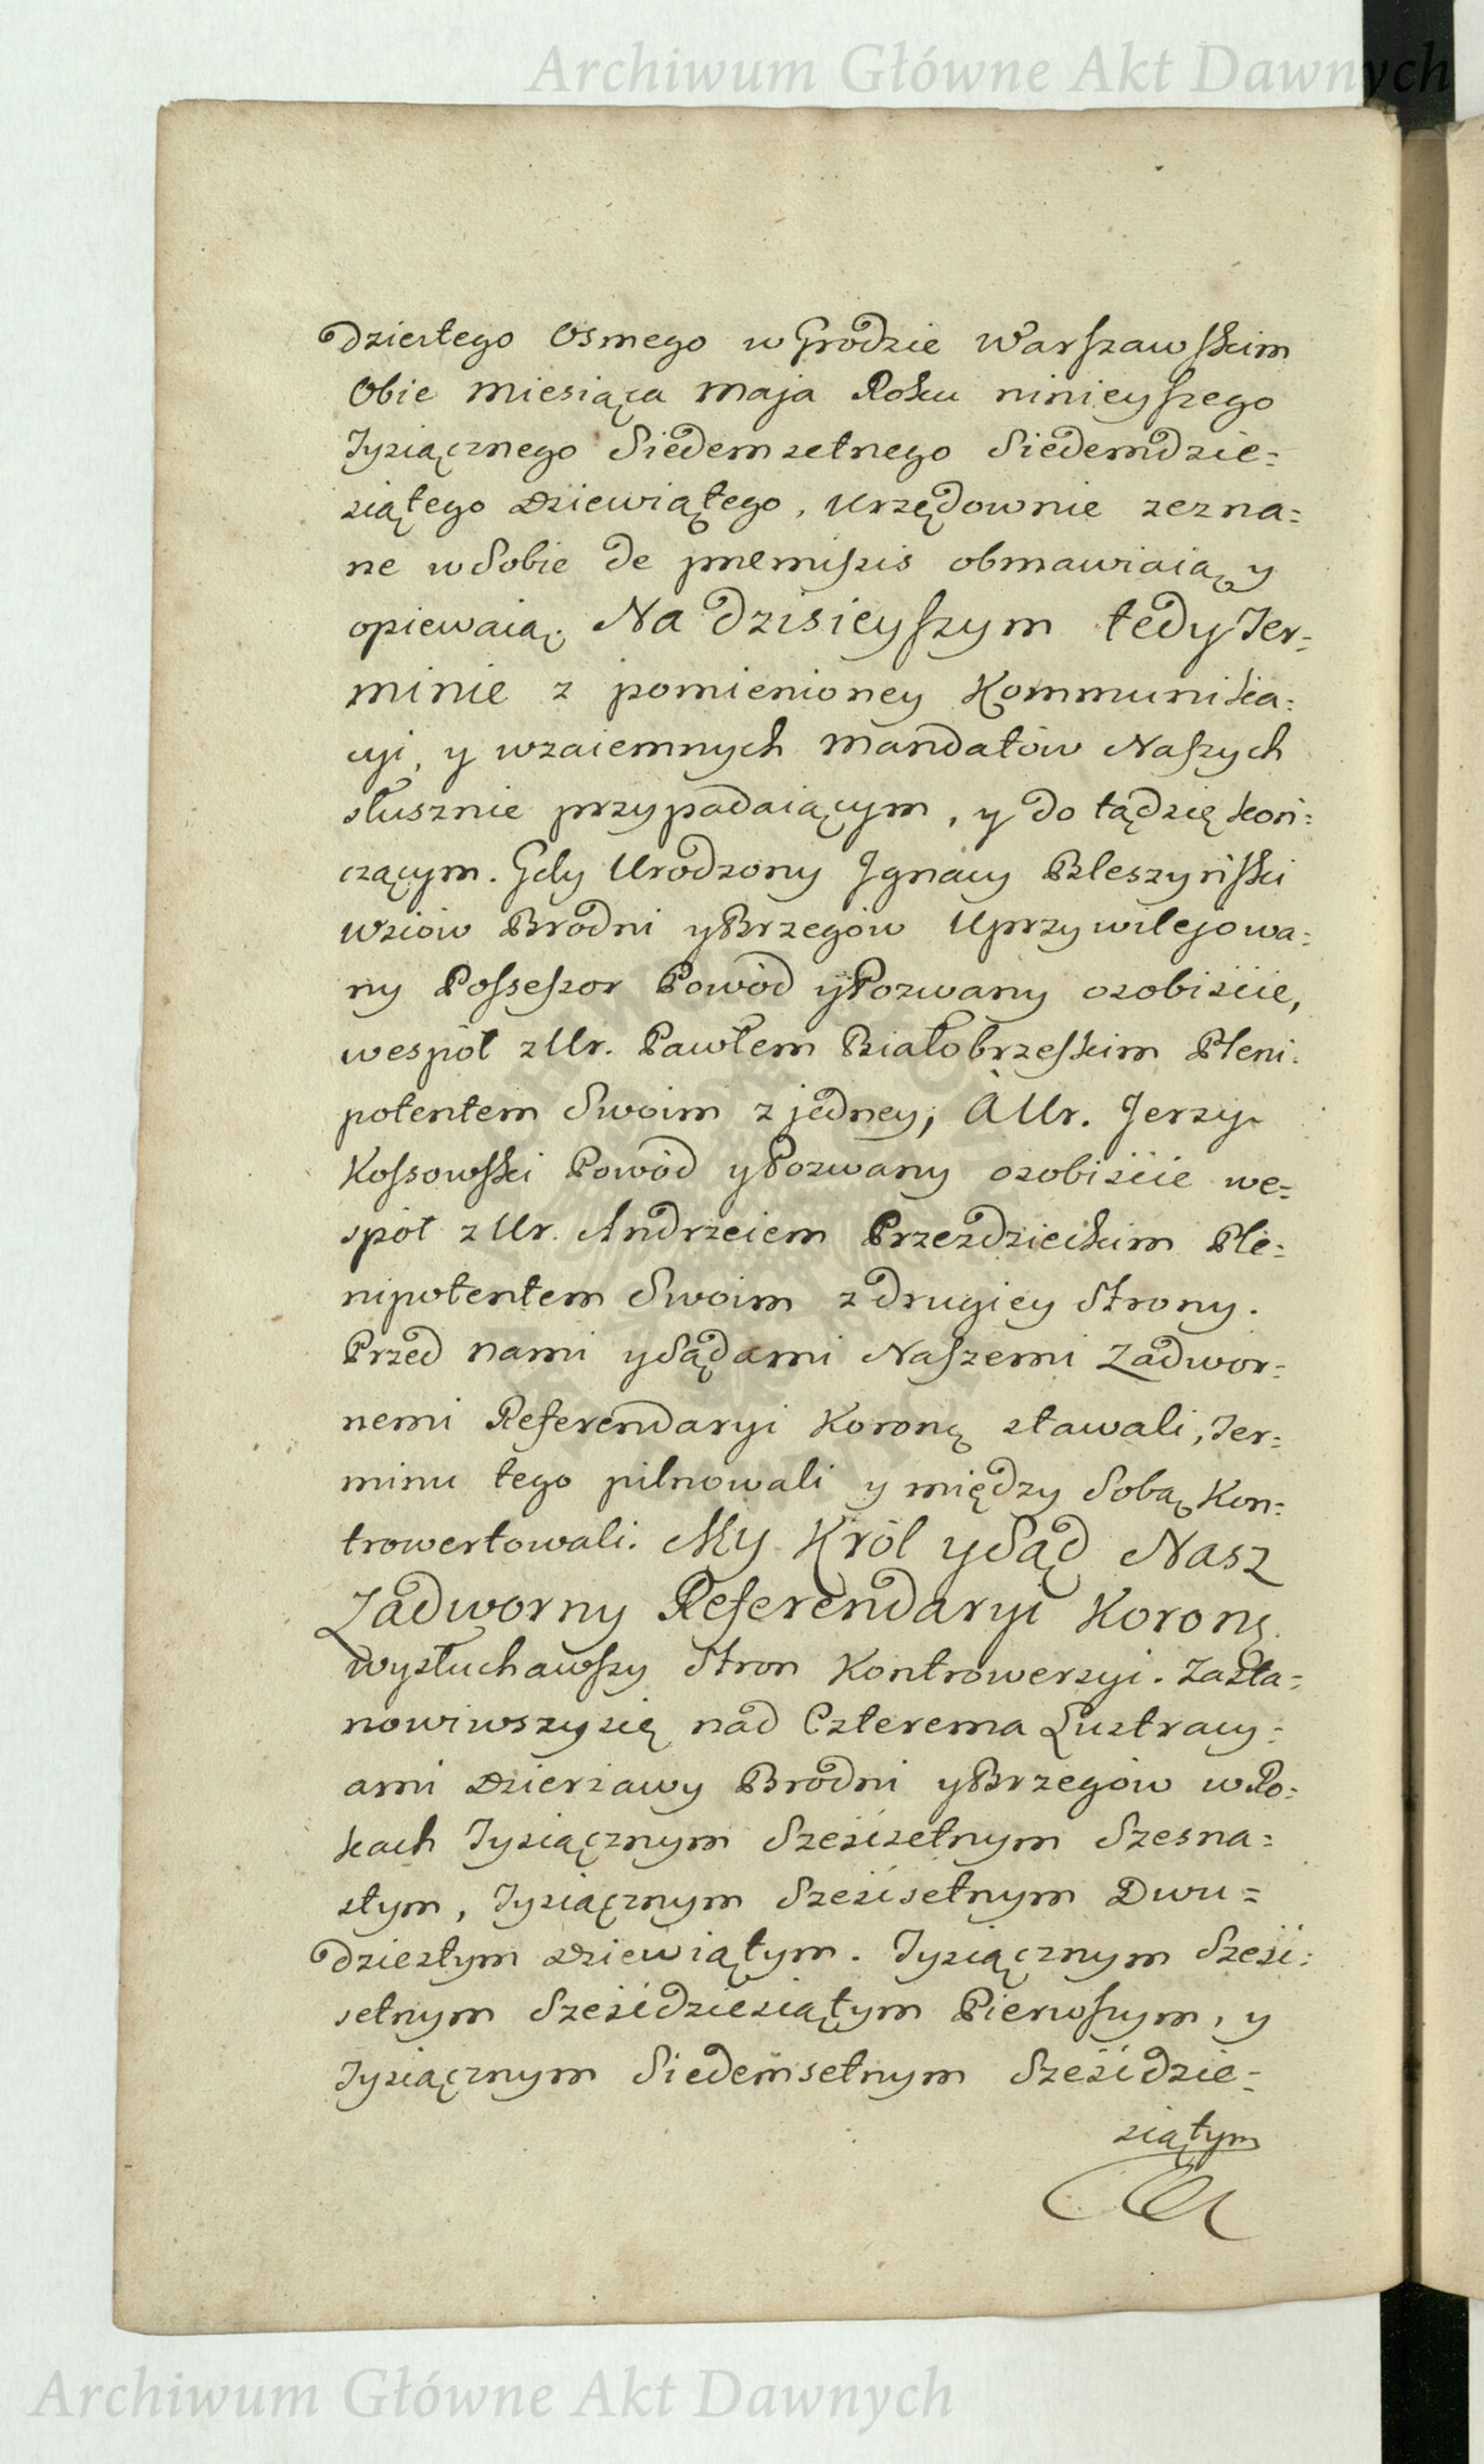 Archiwum Główne Akt Dawnych
dziestego Osmego w Grodzie Warszawskim
Obie Miesiąca Maja Roku ninieyszego
Tysiącznego Siedemsetnego Siedemdzie=
siątego Dziewiątego, Urzędownie zezna=
ne w Sobie de premissis obmawiaią y
opiewaią. Na dzisieyszym tedy Ter=
minie z pomienioney Kommunika=
cyi, y wzaiemnych Mandatów Naszych
słusznie przypadaiącym, y do tądsię koń=
czącym. Gdy Urodzony Ignacy Błeszyński
Wsiów Brodni y Brzegów Uprzywilejowa=
ny Possessor Powód y Pozwany osobiście,
wespół z Ur. Pawłem Białobrzeskim Pleni=
potentem Swoim z jedney; A Ur. Jerzy
Kossowski Powód y Pozwany osobiście we=
spół z Ur. Andrzeiem Przezdzieckim Ple=
nipotentem Swoim z drugiey Strony.
Przed nami y Sądami Naszemi Zadwor=
nemi Referendaryi Koronę stawali, Ter=
minu tego pilnowali y między Sobą Kon=
trowertowali. My Król y Sąd Nasz
Zadworny Referendaryi Koronę.
wysłuchawszy Stron Kontrowersyi. Zasta=
nowiwszysię nad Czterema Lustracy=
ami Dzierżawy Brodni y Brzegów w Ro=
kach Tysiącznym Sześćsetnym Szesna=
stym, Tysiącznym Sześćsetnym Dwu=
dziestym Dziewiątym. Tysiącznym Sześć=
setnym Sześćdziesiątym Pierwszym, y
Tysiącznym Siedemsetnym Sześćdzie=
siątym
Archiwum Główne Akt Dawnych